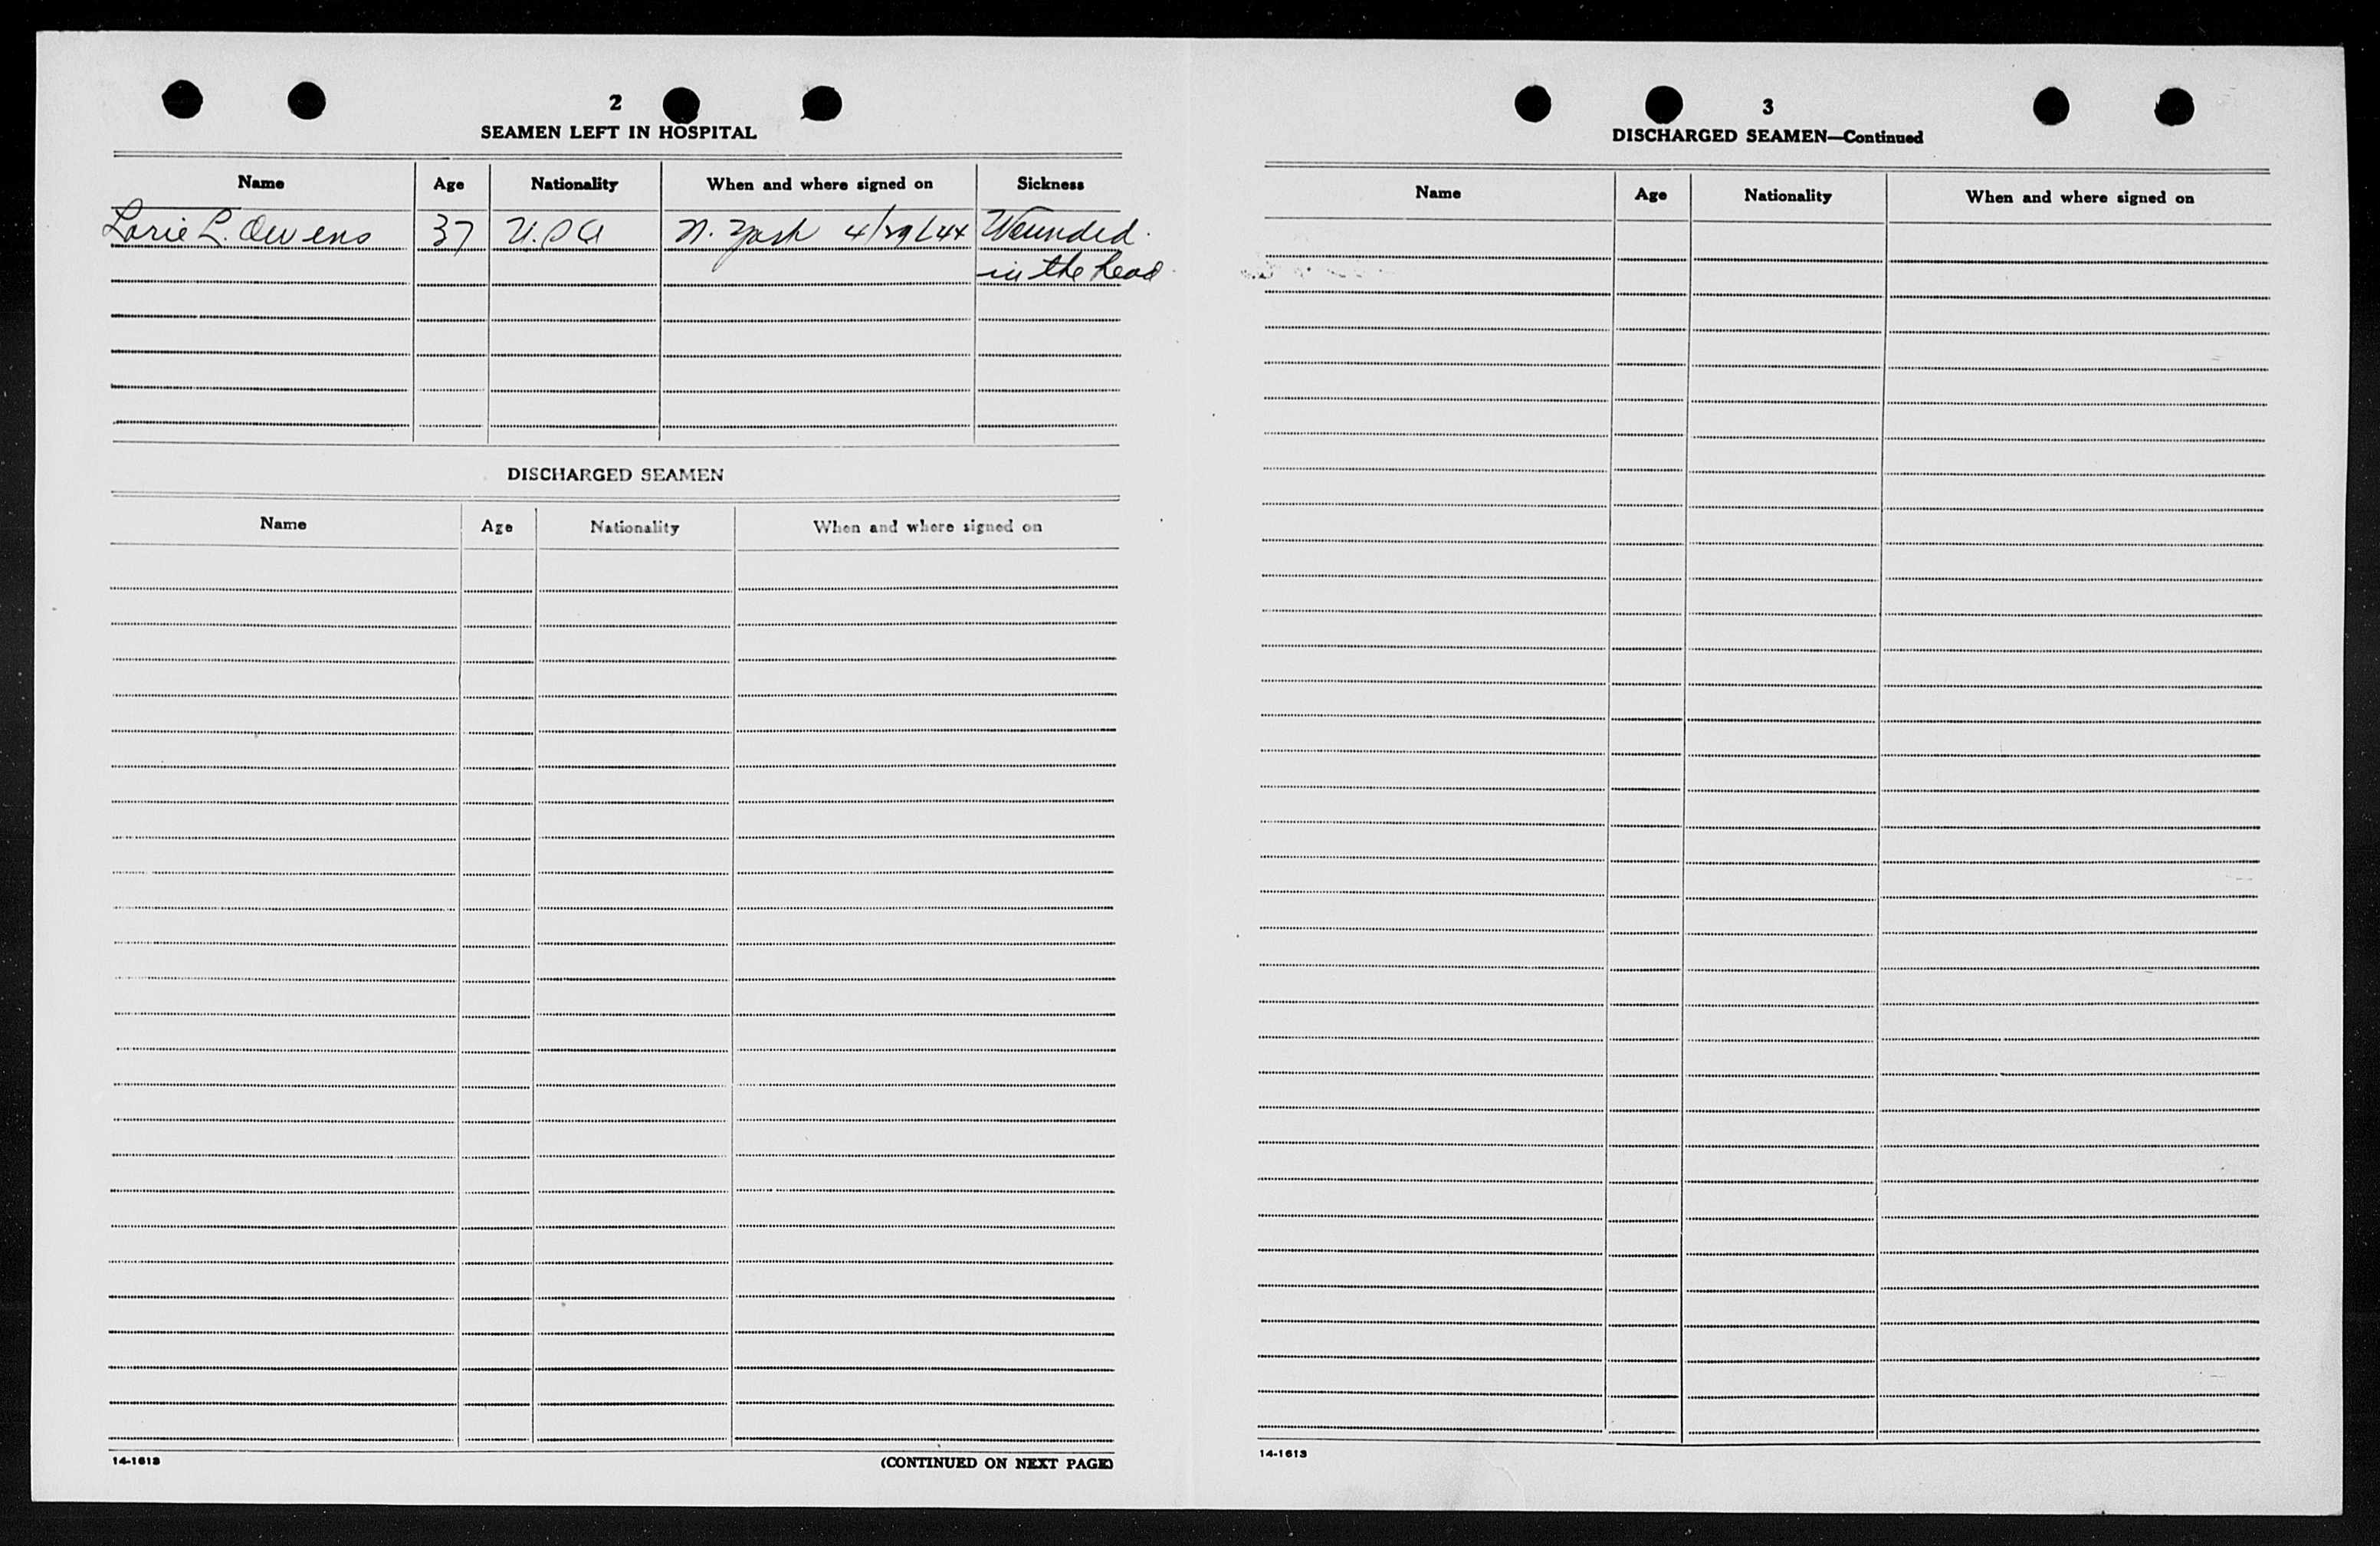 2
SEAMEN LEFT IN HOSPITAL
Name Age Nationality When and where signed on Sickness
Lorie L. Owens 37 U.S.A N. York 4/29/44 Wounded
in the head
DISCHARGED SEAMEN
Name Age Nationality When and where signed on
14-1613 (CONTINUED ON NEXT PAGE)
3
DISCHARGED SEAMEN—Continued
Name Age Nationality When and where signed on
14-1613